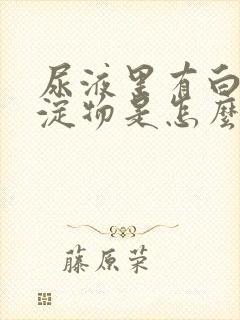 尿液里有白
淀物是怎麼
藤原荣